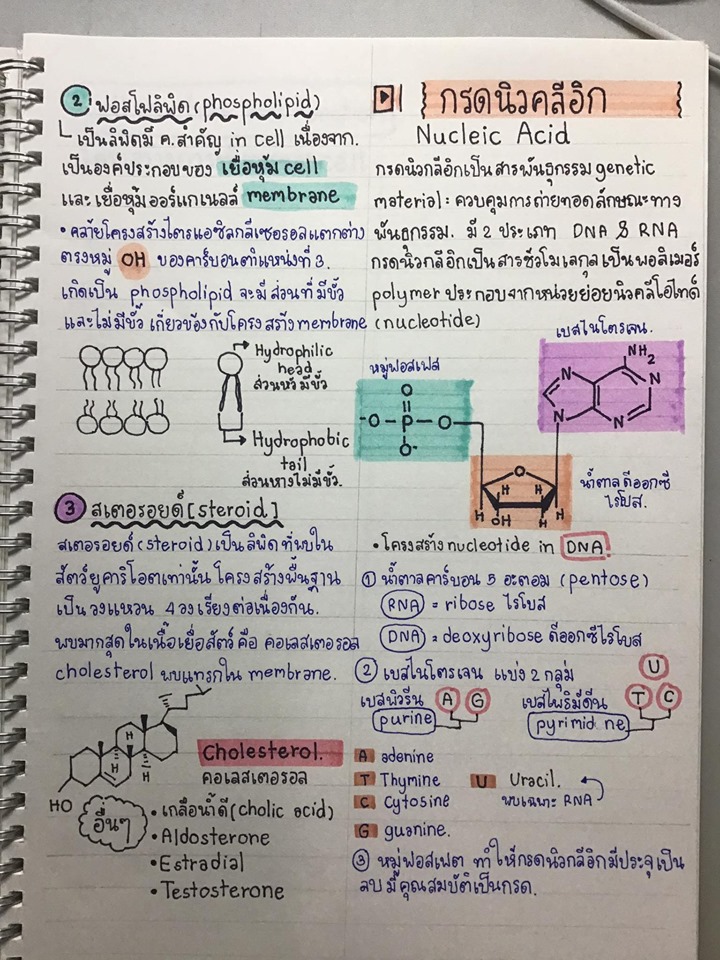 ② ฟอสโฟลิพิด (phospholipid)
เป็นลิพิดมี ค.สำคัญ in cell เนื่องจาก.
เป็นองค์ประกอบของ เยื่อหุ้ม cell
และ เยื่อหุ้มออร์แกเนลล์ membrane
• คล้ายโครงสร้างไตรแอซิลกลีเซอรอลแตกต่าง
ตรงหมู่ OH ของคาร์บอนตำแหน่งที่ 3.
เกิดเป็น phospholipid จะมี ส่วนที่มีขั้ว
และไม่มีขั้ว เกี่ยวข้องกับโครงสร้าง membrane
Hydrophilic
head
ส่วนหัวมีขั้ว
Hydrophobic
tail
ส่วนหางไม่มีขั้ว.
③ สเตอรอยด์ [steroid]
สเตอรอยด์ (steroid) เป็นลิพิดที่พบใน
สัตว์ยูคาริโอตเท่านั้น โครงสร้างพื้นฐาน
เป็นวงแหวน 4 วงเรียงต่อเนื่องกัน.
พบมากสุดในเนื้อเยื่อสัตว์ คือ คอเลสเตอรอล
cholesterol พบแทรกใน membrane.
H
H
H
HO
Cholesterol.
คอเลสเตอรอล
อื่นๆ
• เกลือน้ำดี (cholic acid)
• Aldosterone
• Estradial
• Testosterone
กรดนิวคลีอิก
Nucleic Acid
กรดนิวกลีอิกเป็นสารพันธุกรรม genetic
material : ควบคุมการถ่ายทอดลักษณะทาง
พันธุกรรม. มี 2 ประเภท DNA & RNA
กรดนิวกลีอิกเป็นสารชีวโมเลกุลเป็นพอลิเมอร์
polymer ประกอบจากหน่วยย่อยนิวคลีโอไทด์
(nucleotide)
เบสไนโตรเจน.
หมู่ฟอสเฟส
NH₂
N
N
N
N
O
-O-P-O
O-
O
H
H
H
H
OH
H
น้ำตาลดีออกซี
ไรโบส.
• โครงสร้าง nucleotide in DNA
① น้ำตาลคาร์บอน 5 อะตอม (pentose)
RNA = ribose ไรโบส
DNA = deoxyribose ดีออกซีไรโบส
② เบสไนโตรเจน แบ่ง 2 กลุ่ม
เบสพิวรีน A G
purine
เบสไพริมิดีน U T C
pyrimidine
A adenine
T Thymine
C Cytosine
G guanine.
U Uracil.
พบเฉพาะ RNA
③ หมู่ฟอสเฟต ทำให้กรดนิวกลีอิกมีประจุเป็น
ลบ มีคุณสมบัติเป็นกรด.